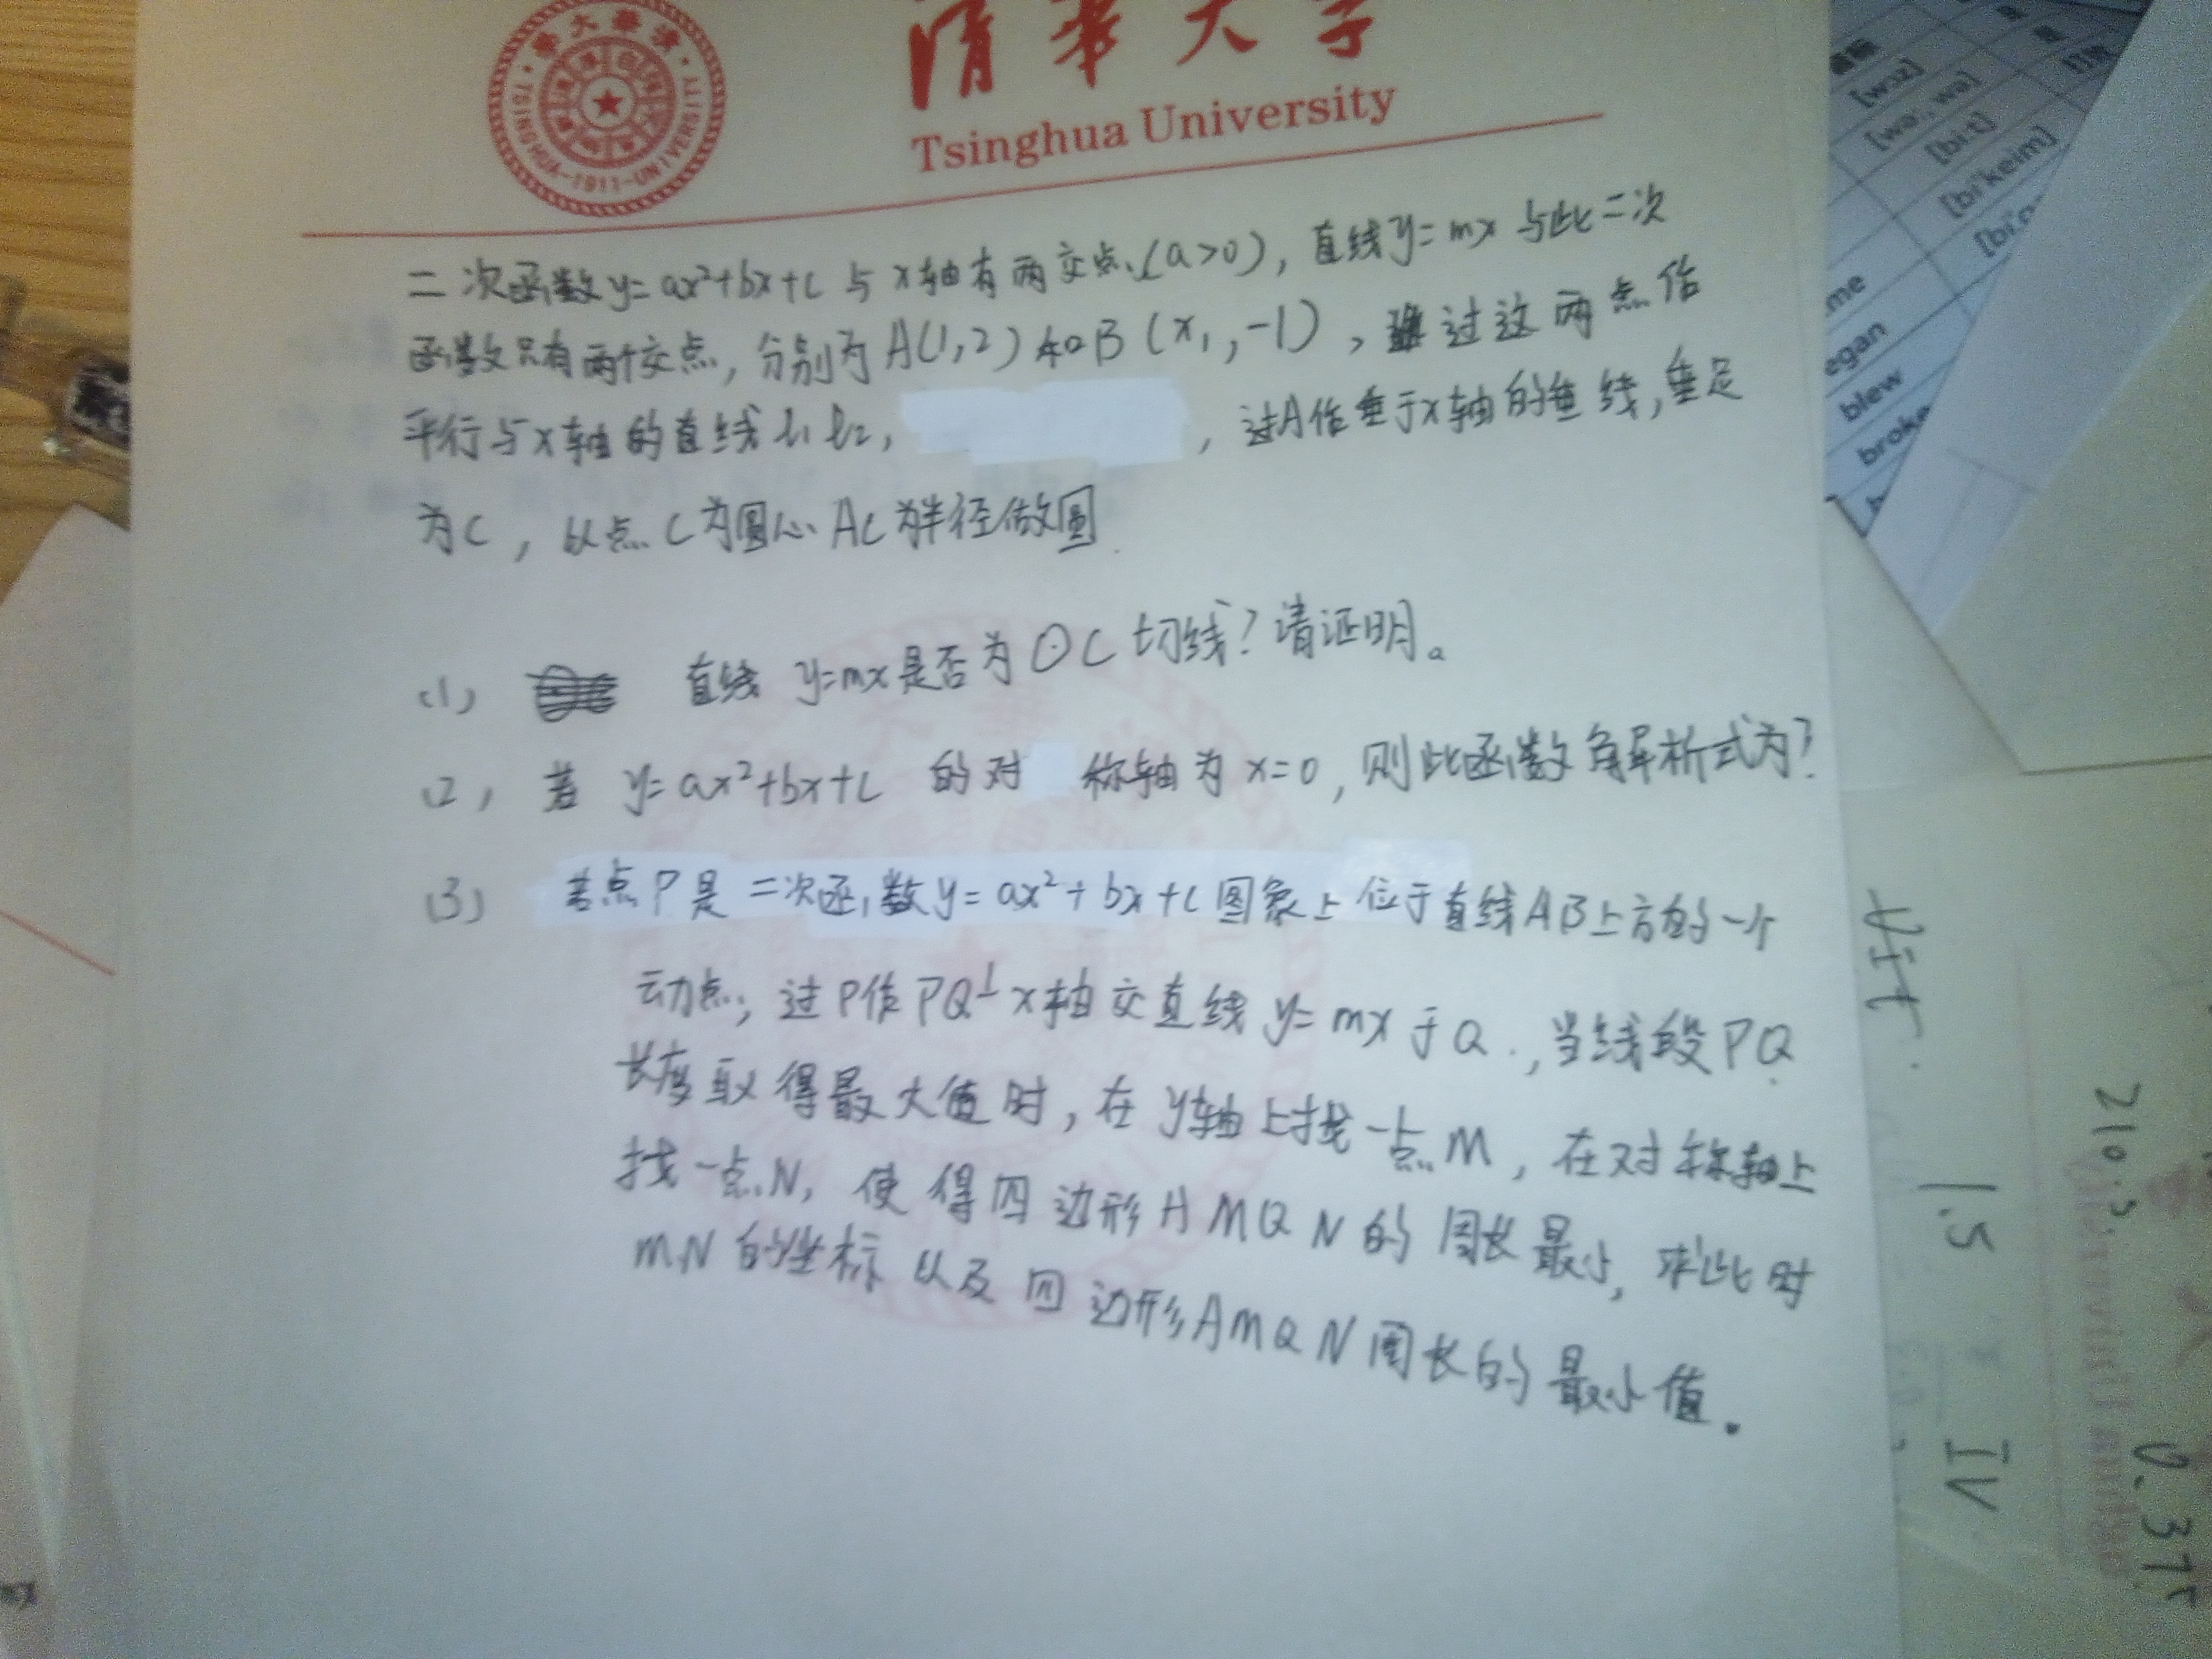 清华大学
Tsinghua University
TSINGHUA-1911-UNIVERSITY
二次函数y=ax²+bx+c 与x轴有两交点(a>0),直线y=mx与此二次
函数只有两个交点,分别为A(1,2)和B(x₁,-1),过这两点作
平行与x轴的直线l₁ l₂, ,过A作垂于x轴的垂线,垂足
为C,以点C为圆心AC为半径做圆.
(1) 直线 y=mx是否为⊙C切线?请证明。
(2) 若 y=ax²+bx+c 的对称轴为x=0,则此函数解析式为?
(3) 若点P是二次函数y=ax²+bx+c图象上位于直线AB上方的一个
动点,过P作PQ⊥x轴交直线y=mx于Q.,当线段PQ
长度取得最大值时,在y轴上找一点M,在对称轴上
找一点N,使得四边形AMQN的周长最小,求此时
MN的坐标以及四边形AMQN周长的最小值.
[wɔz]
[bi:t]
[bi'keim]
egan
blew
broke
1.5
IV
210.5